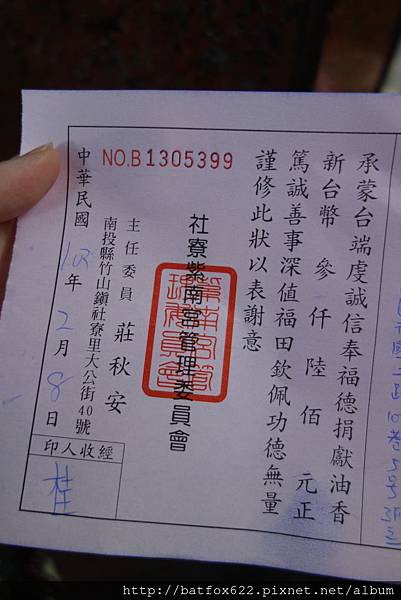 承蒙台端虔誠信奉福德捐獻油香
新台幣 參仟陸佰 元正
篤誠善事深值福田欽佩功德無量
謹修此狀以表謝意
社寮紫南宮管理委員會
主任委員 莊秋安
南投縣竹山鎮社寮里大公街40號
NO.B 1305399
中華民國 103 年 2 月 8 日
經收人印
桂
http://batfox622.pixnet.net/album